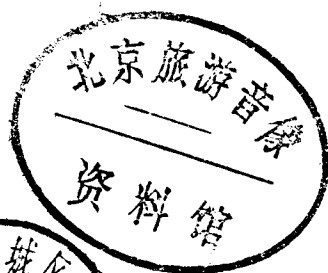 北京旅游音像
资料馆
城区